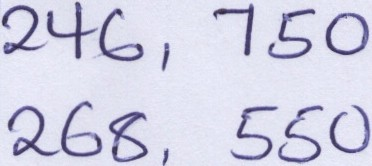 246, 750
268, 550